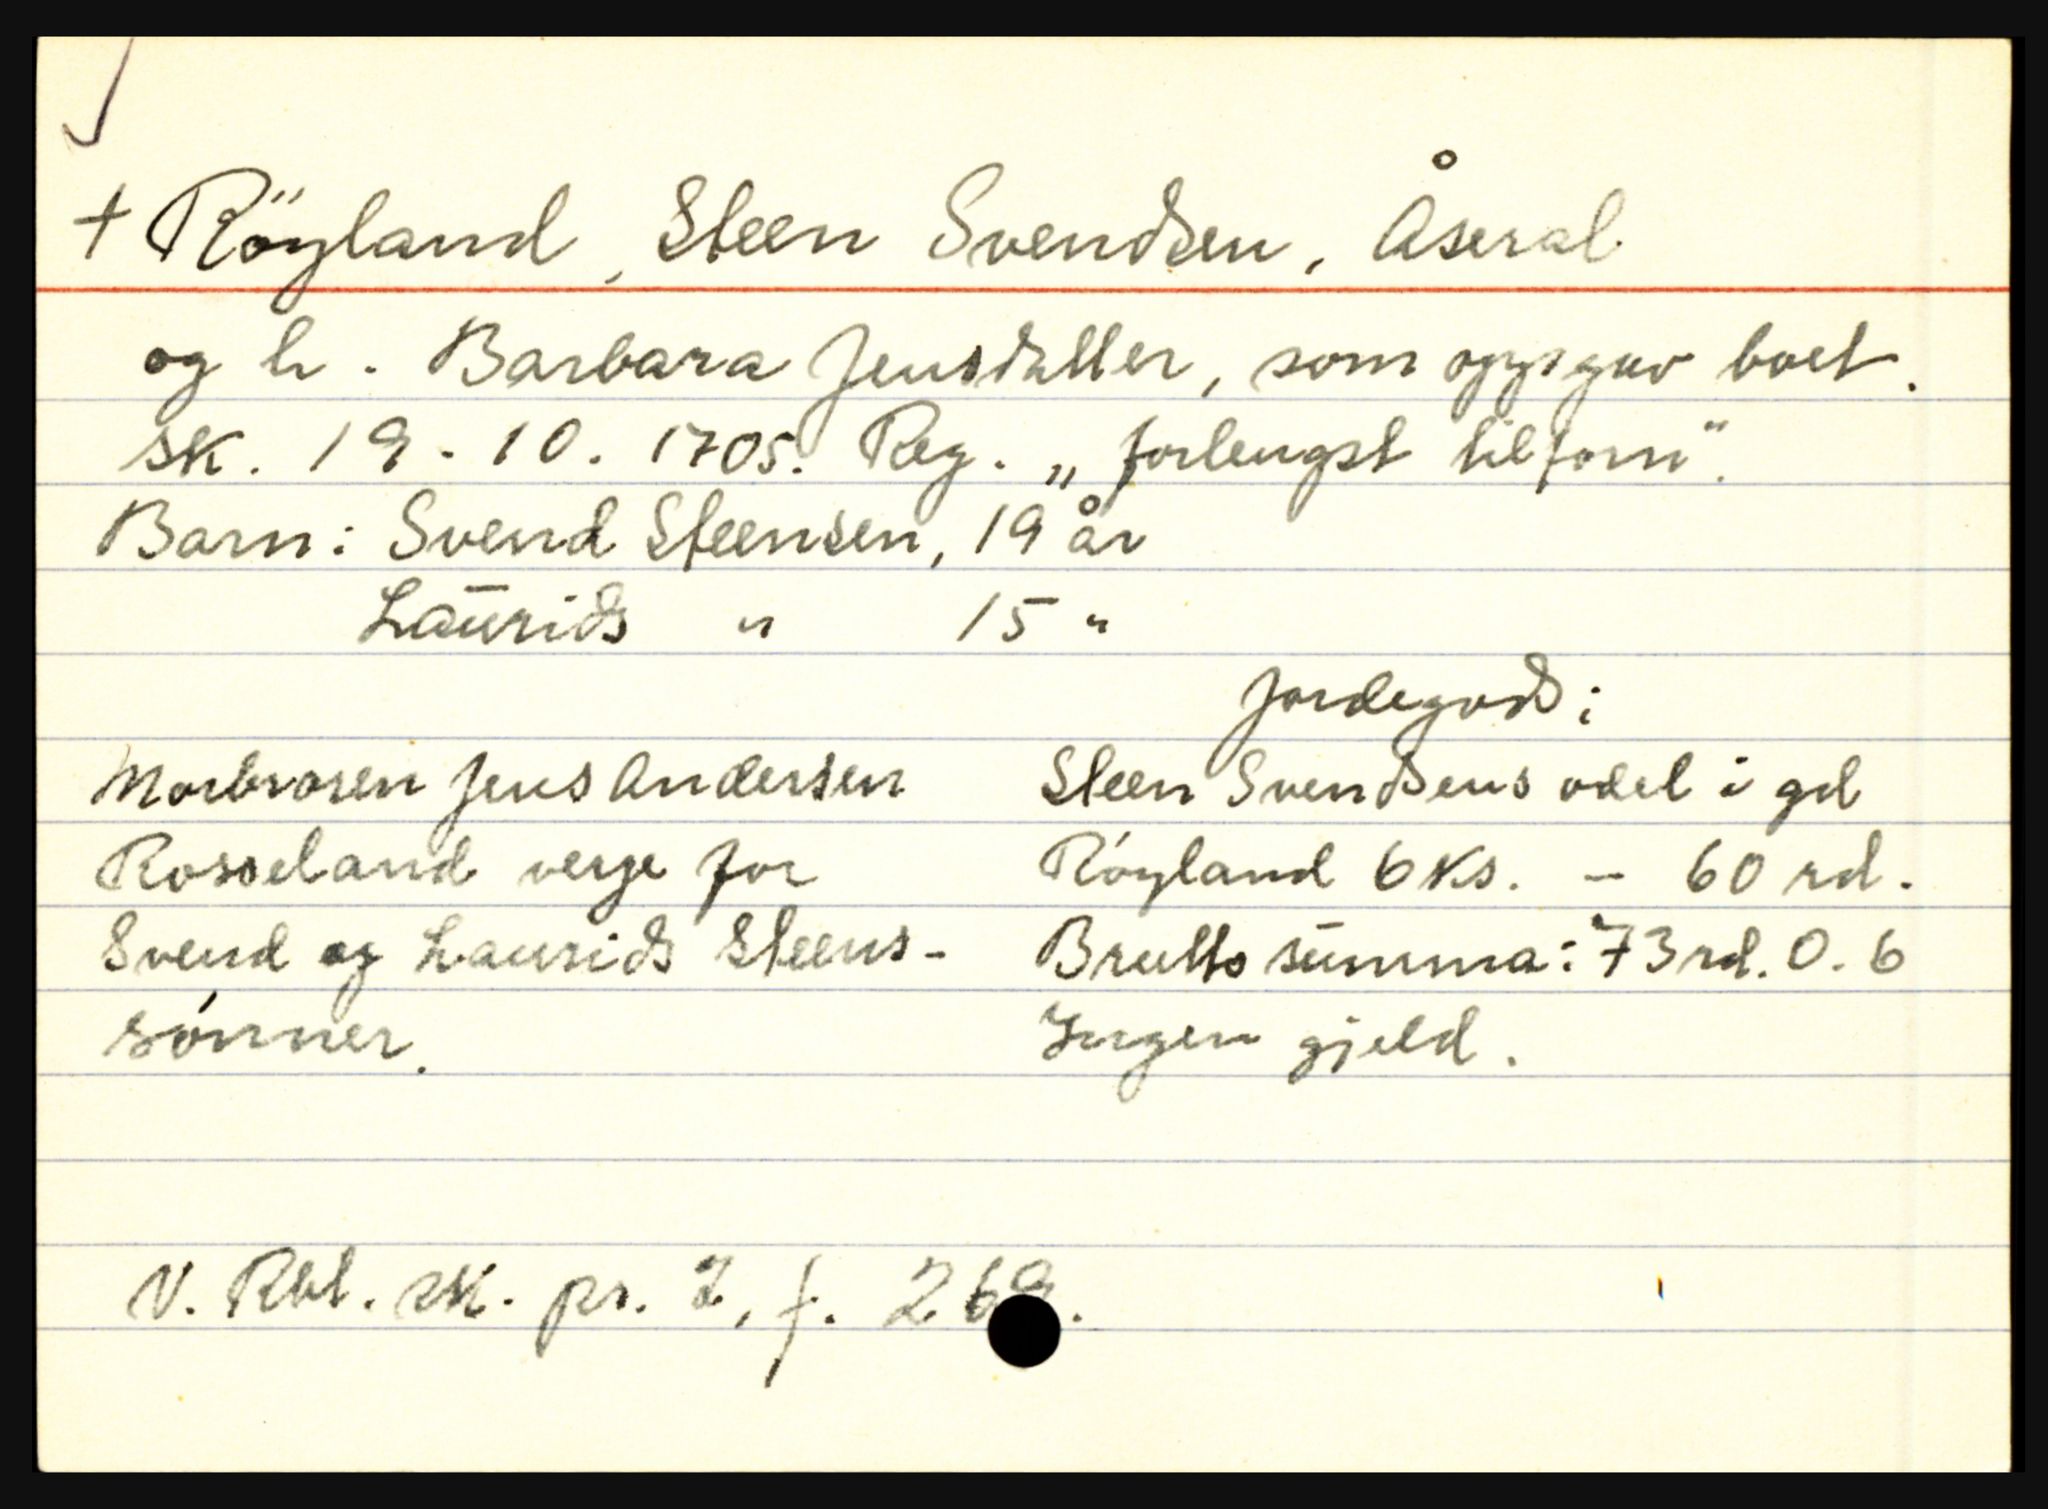 + Röyland, Steen Svendsen, Åseral
og h. Barbara Jensdatter, som oppgav boet.
sk. 19-10. 1705. Reg. „forlengst tilforn".
Barn: Svend Steensen, 19 år
Laurids " 15 "
Morbroren Jens Andersen
Rosseland verge for
Svend og Laurids Steens-
sónner.
Jordegods:
Steen Svendsens odel i gd
Róyland 6 ks. - 60 rd.
Brutto summa: 73 rd. 0. 6
Ingen gjeld.
V. Rbt. sk. pr. 2, f. 269.